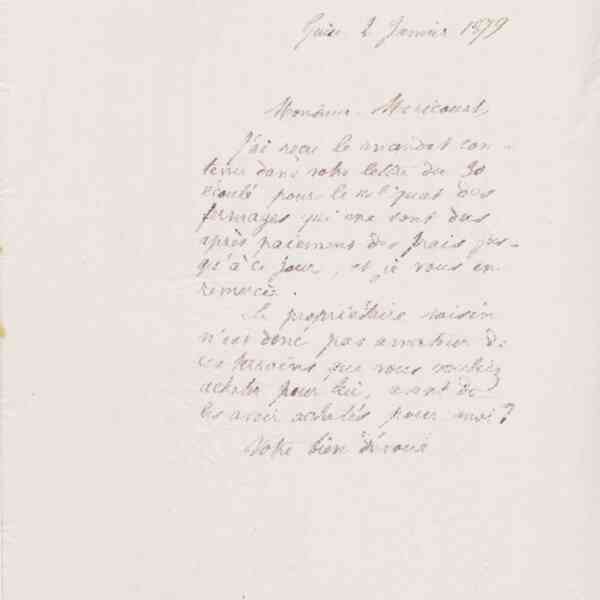 Guise 2 Janvier 1879
Monsieur Méricourt,
J'ai reçu le mandat con-
tenu dans votre lettre du 30
écoulé pour le reliquat des
fermages qui me sont dus
après paiement des frais jus-
qu'à ce jour, et je vous en
remercie.
Le propriétaire voisin
n'est donc pas amateur de
ces terrains que vous vouliez
acheter pour lui, avant de
les avoir achetés pour moi?
Votre bien dévoué